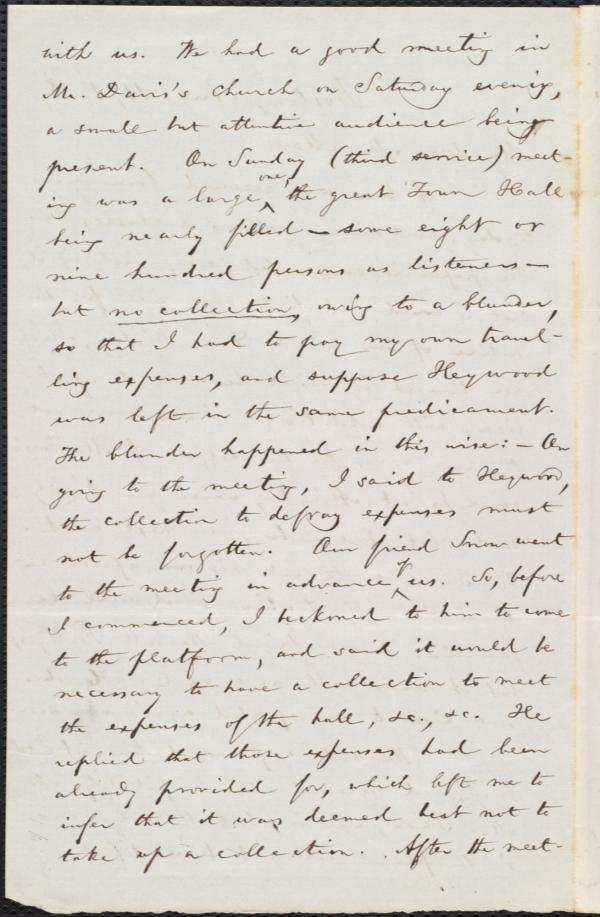 with us. We had a good meeting in
Mr. Davis's church on Saturday evening,
a small but attentive audience being
present. On Sunday (third service) meet-
ing was a large one, the great Town Hall
being nearly filled — some eight or
nine hundred persons as listeners —
but no collection, owing to a blunder,
so that I had to pay my own travel-
ling expenses, and suppose Heywood
was left in the same predicament.
The blunder happened in this wise: — On
going to the meeting, I said to Heywood,
the collection to defray expenses must
not be forgotten. Our friend Snow went
to the meeting in advance of us. So, before
I commenced, I beckoned to him to come
to the platform, and said it would be
necessary to have a collection to meet
the expenses of the hall, &c., &c. He
replied that those expenses had been
already provided for, which left me to
infer that it was deemed best not to
take up a collection. After the meet-